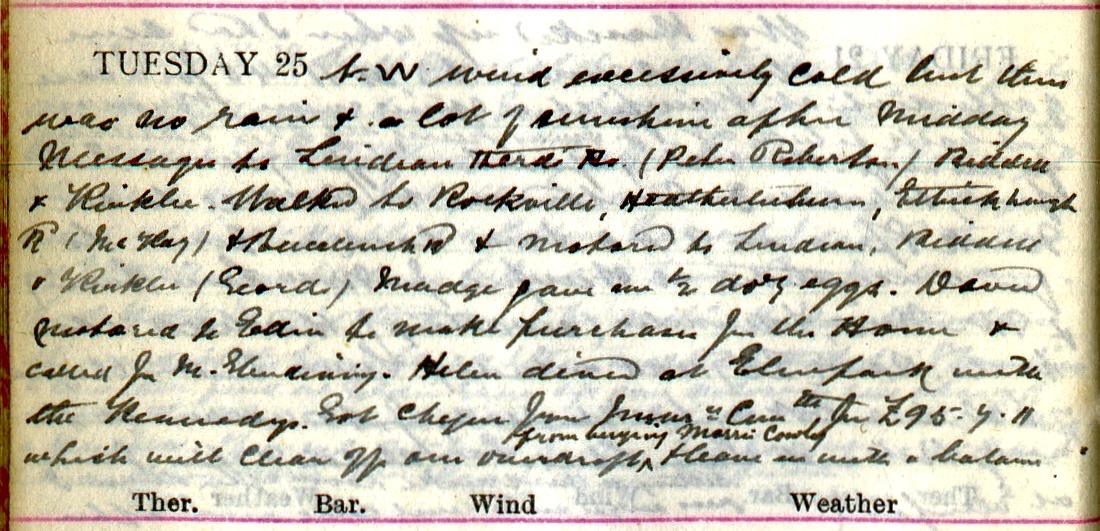 TUESDAY 25 N-W wind excessively cold but there
was no rain & a lot of sunshine after Midday
Messages to Lindean Rd. (Peter Roberton) Riddell
& Kinklie. Walked to Rockville, Heatherlieburn, Ettrickhaugh
R (McKay) & Buccleuch Rd & motored to Lindean, Riddell
& Kinklie (Geords) Madge gave me ½ doz eggs. David
motored to Edin to make purchases for the Home &
called for M. Glendining. Helen dined at Elmpark with
the Kennedys. Got cheque from Insur Com for £95-7-11
from buying Morris Cowley
which will clear off our overdraft & leave us with a balance.
Ther. Bar. Wind Weather